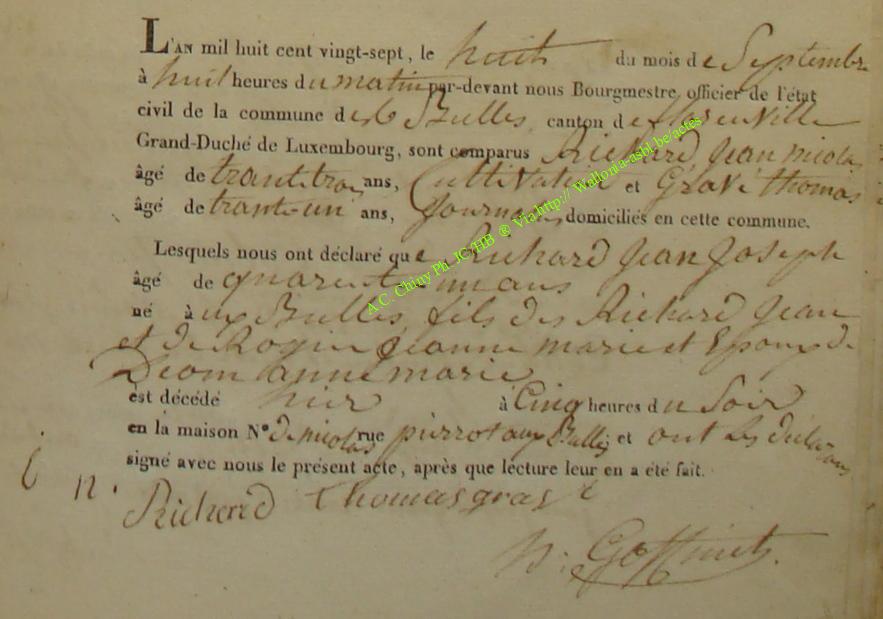 L'AN mil huit cent vingt-sept, le huit du mois de Septembre
à huit heures du matin par-devant nous Bourgmestre officier de l'état
civil de la commune des Bulles, canton de florenville
Grand-Duché de Luxembourg, sont comparus Richard Jean nicolas
âgé de trante trois ans, Cultivateur et Gravé thomas
âgé de trante un ans, Journalier domiciliés en cette commune.
Lesquels nous ont déclaré que Richard Jean Joseph
âgé de quarente un ans
né à ux Bulles, fils des Richard Jean
et de Rogier Jeanne marie et Epoux de
Deom anne marie
est décédé hier à Cinq heures du Soir
en la maison N° de nicolas rue pierrot aux Bulles; et ont les declarans
signé avec nous le présent acte, après que lecture leur en a été fait.
j n. Richard Thomas gravé
h: Goffinet
A.C. Chiny Ph. JC/HB ® Via http:// Wallonia-asbl.be/actes